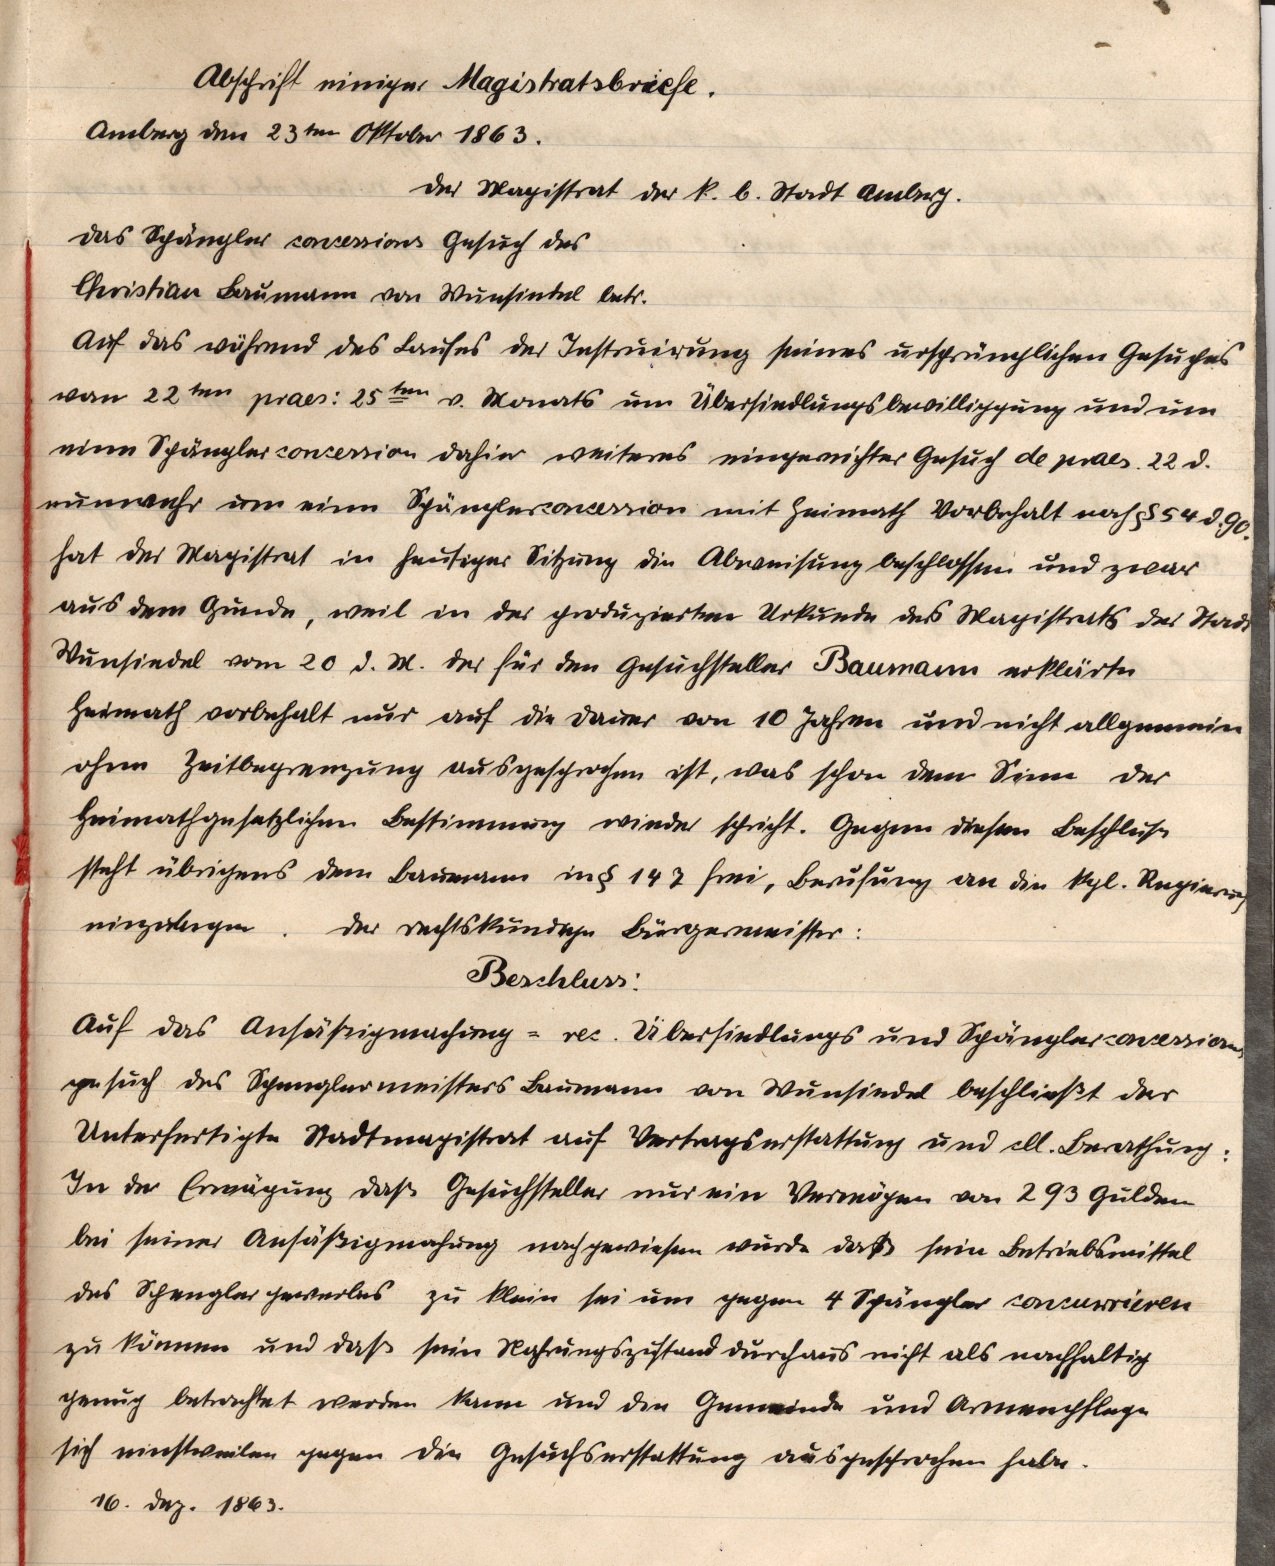 Abschrift einiger Magistratsbriefe.
Amberg den 23ten Oktober 1863.
Der Magistrat der k. b. Stadt Amberg.
Das Spängler concessions Gesuch des
Christian Baumann von Wunsiedel betr.
Auf das während des Laufes der Instruirung seines ursprünglichen Gesuches
vom 22ten praes: 25ten v. Monats um Übersiedlungsbewilliggung und um
eine Spänglerconcession dahier weiteres eingereichter Gesuch de praes. 22 d.
nunmehr um eine Spänglerconcession mit Heimath Vorbehalt nach § 54 d. Go.
hat der Magistrat in heutiger Sitzung die Abweisung beschlossen und zwar
aus dem Grunde, weil in der produzierten Urkunde des Magistrats der Stadt
Wunsiedel vom 20 d. M. der für den Gesuchsteller Baumann erklärte
Heimath vorbehalt nur auf die Dauer von 10 Jahren und nicht allgemein
ohne Zeitbegrenzung ausgesprochen ist, was schon dem Sinne der
Heimathgesetzlichen Bestimmung wieder spricht. Gegen diesen Beschluss
steht übrigens dem Baumann in § 147 frei, Berufung an die kgl. Regierung
einzulegen. Der rechtskundige Bürgermeister:
Beschluss:
Auf das Ansäßigmachung = rec. Übersiedlungs und Spänglerconcessions
gesuch des Spenglermeisters Baumann von Wunsiedel beschließt der
Unterfertigte Stadtmagistrat auf Vertragserstattung und cll. Berathung:
In der Erwägung daß Gesuchsteller nur ein Vermögen von 293 Gulden
bei seiner Ansäßigmachung nachgewiesen wurde daß sein Betriebsmittel
des Spenglergewerbes zu klein sei um gegen 4 Spängler concurrieren
zu können und daß sein Nahrungszustand durchaus nicht als nachhaltig
genug betrachtet werden kann und die Gemeinde und Armenpflege
sich einstweilen gegen die Gesuchserstattung ausgesprochen habe.
16. Dez. 1863.